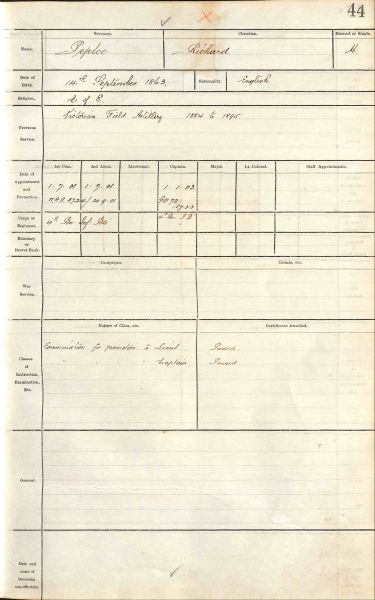 44
Surname. Christian. Married or Single.
Name. Peploe Richard M.
Date of Birth. 14th September 1863. Nationality. English
Religion. C of E.
Previous Service. Victorian Field Artillery 1884 to 1895
1st Com. 2nd Lieut. Lieutenant. Captain. Major. Lt.-Colonel. Staff Appointments.
Date of Appointment and Promotion.
1. 7. 01 1. 7. 01 1. 1. 03
Corps or Regiment.
4th Bn. Inf Bde
Honorary or Brevet Rank.
Campaigns. Medals, etc.
War Service.
Nature of Class, etc. Certificates Awarded.
Classes of Instruction, Examination, Etc.
Examination for promotion to Lieut. Passed
" " " Captain Passed
General.
Date and cause of becoming non-effective.